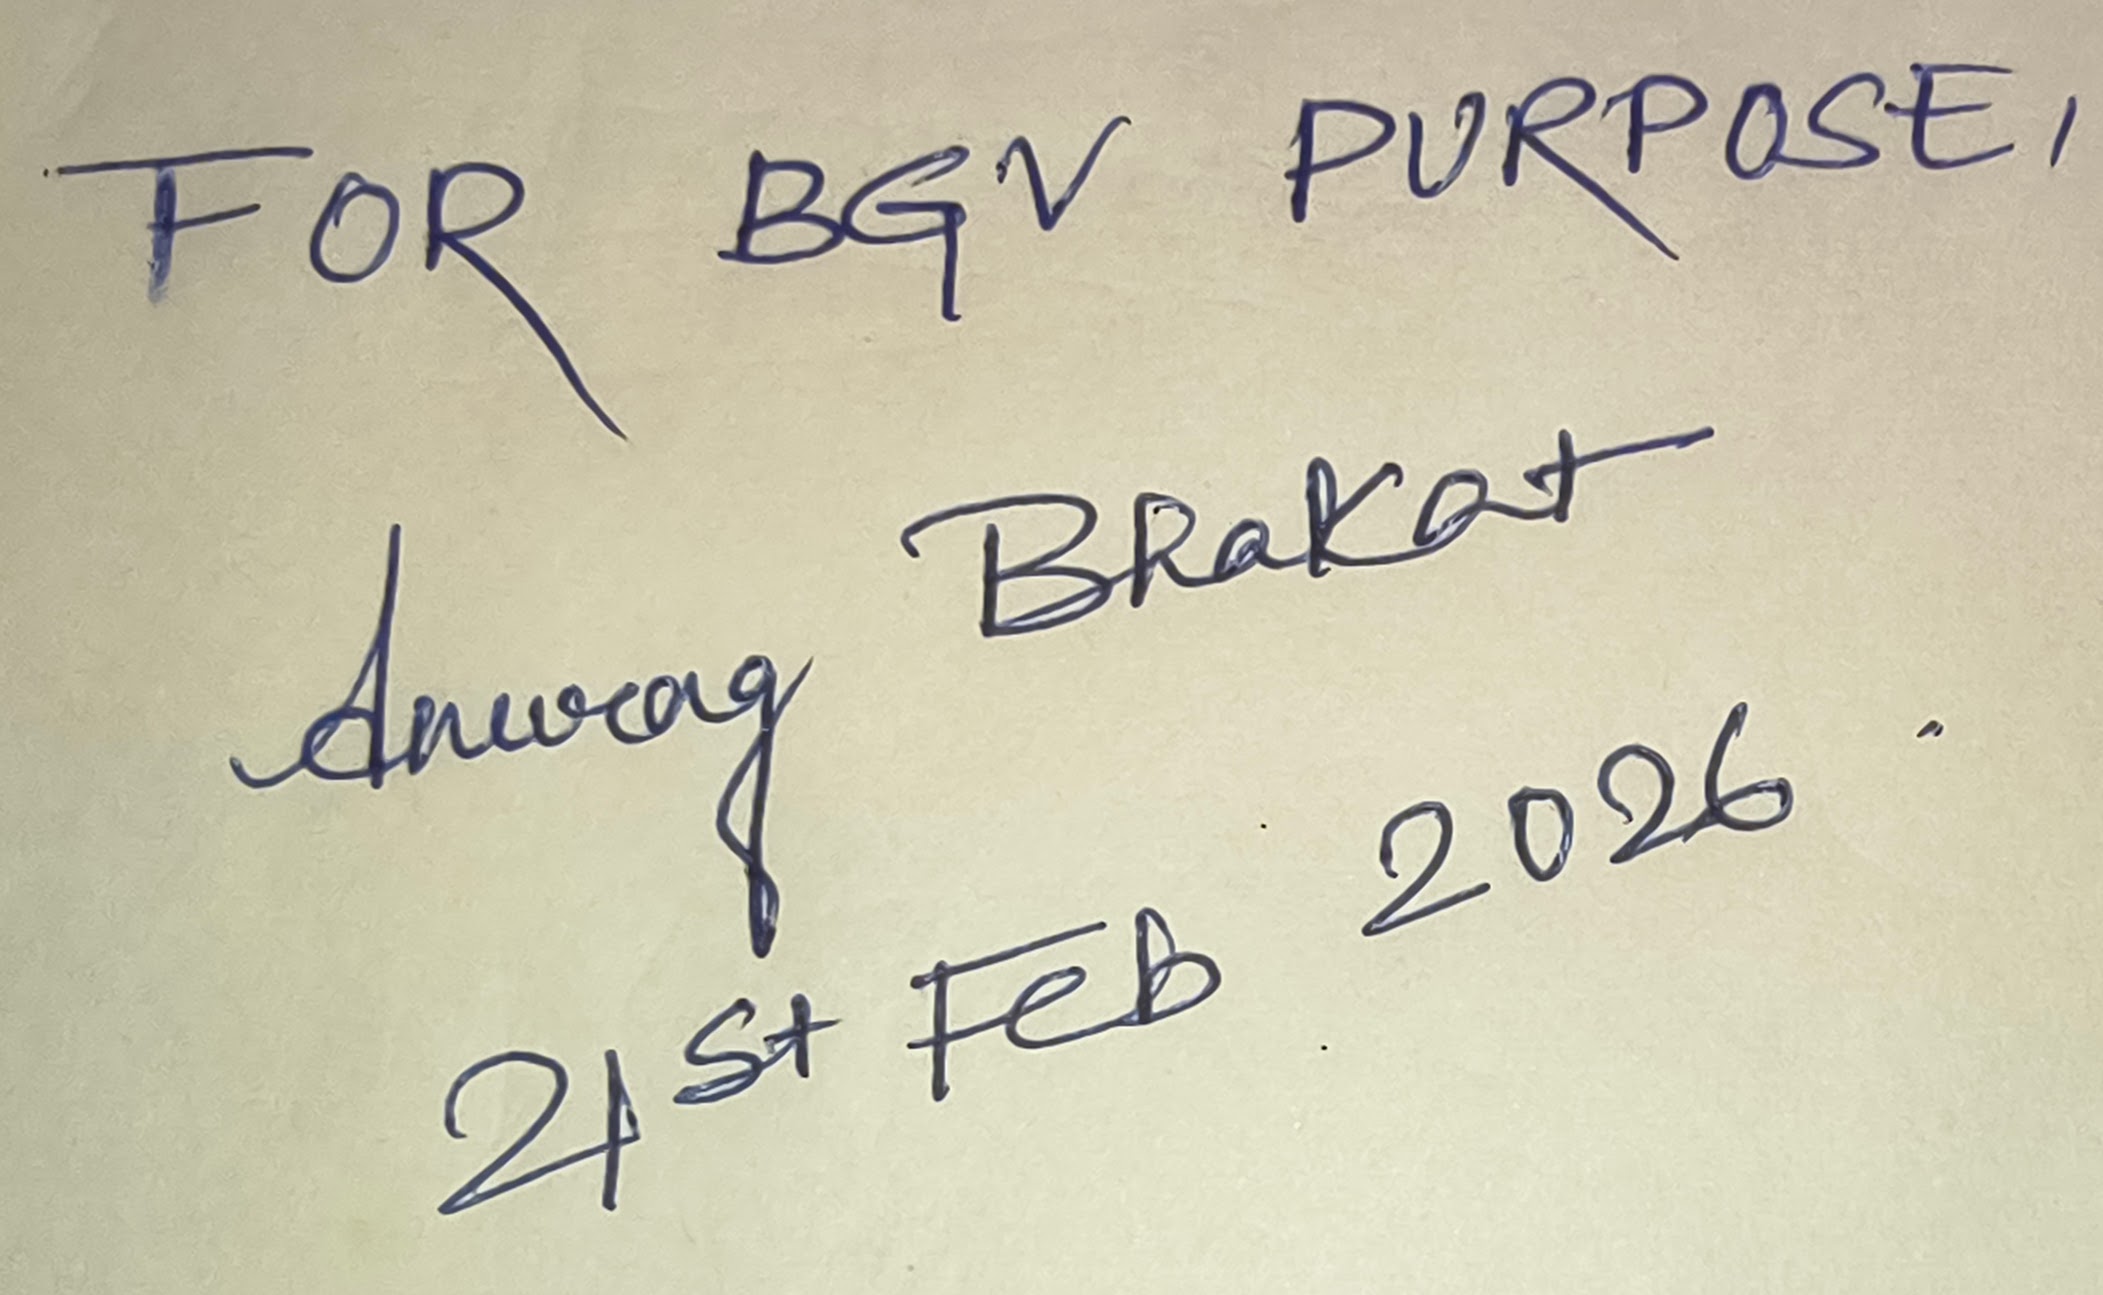 FOR BGV PURPOSE,
Anurag BRaKat
21st Feb 2026